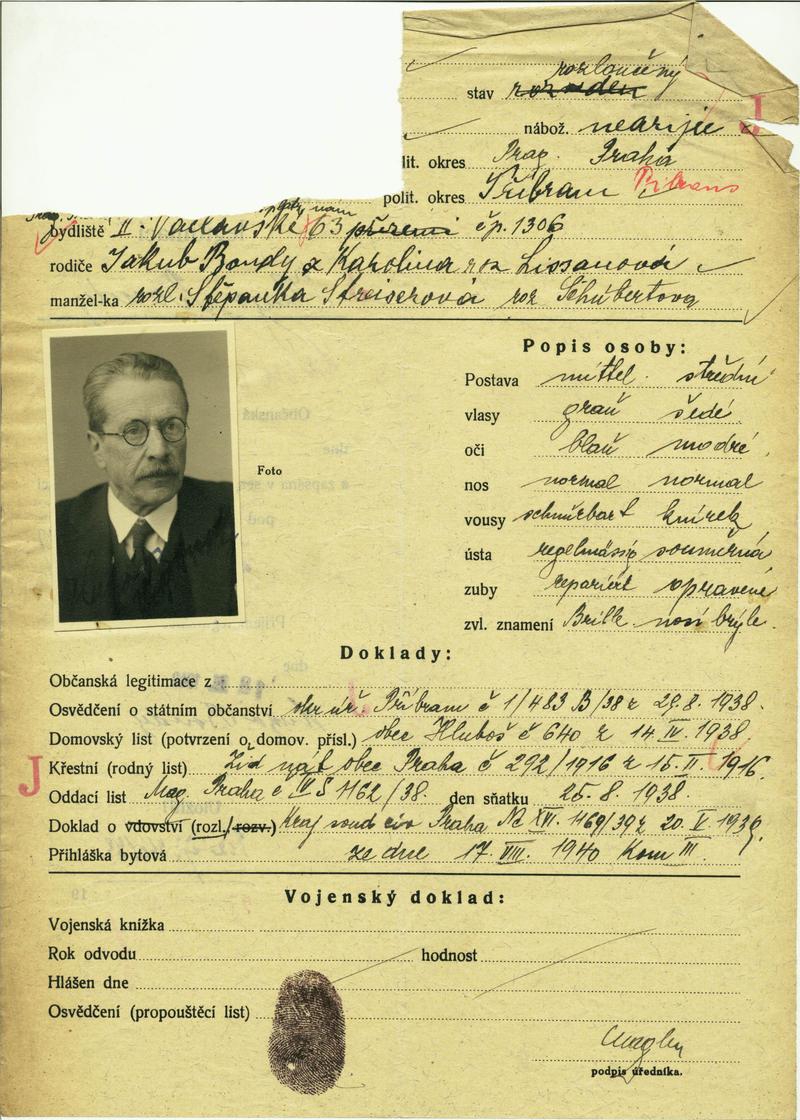 rozloučený
stav
J
nábož. nearijec
lit. okres Prag. Praha
polit. okres Příbram Pibrans
bydliště II. Václavské 63 přízemí čp. 1306
rodiče Jakub Bondy a Karolina roz Lissauová
manžel-ka rozl. Štěpanka Streiserová roz Schubertova
Popis osoby:
Postava mittel. střední
vlasy grau šedé
oči blau modré
nos normal normal
Foto
vousy schnurbart knírek
ústa regelmässig souměrná
zuby repariert opravené
zvl. znamení Brille nosí brýle.
Doklady:
Občanská legitimace z
Osvědčení o státním občanství okr. úř. Příbram č 1/483 B/38 z 29.8. 1938.
Domovský list (potvrzení o domov. přísl.) obec Hluboš č 640 z 14. IV. 1938.
J Křestní (rodný list) Žid náb obec Praha č 292/1916 z 15. II. 1916.
Oddací list Mag. Praha č IV Š 1162/38. den sňatku 25. 8. 1938.
Doklad o vdovství (rozl./rozv.) Kraj soud civ Praha Nc XVII. 1169/39 z 20. V. 1939.
Přihláška bytová ze dne 17. VIII. 1940 Kom III.
Vojenský doklad:
Vojenská knížka
Rok odvodu hodnost
Hlášen dne
Osvědčení (propouštěcí list)
podpis úředníka.